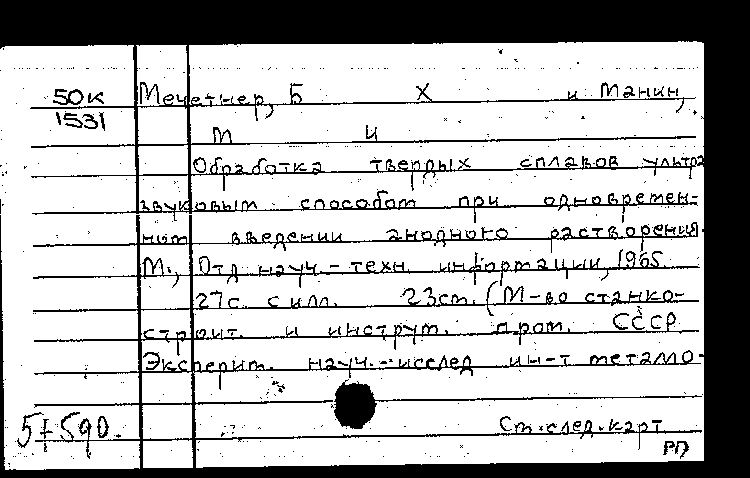 50к
1531
Мечетнер, Б Х и Манин,
М И
Обработка твердых сплавов ультра
звуковым способом при одновремен-
ном введении анодного растворения.
М., Отд науч.-техн. информации, 1965.
27с. с илл. 23см. (М-во станко-
строит. и инструм. пром. СССР
Эксперит. науч.-исслед ин-т металло-
Ст.след.карт
РП